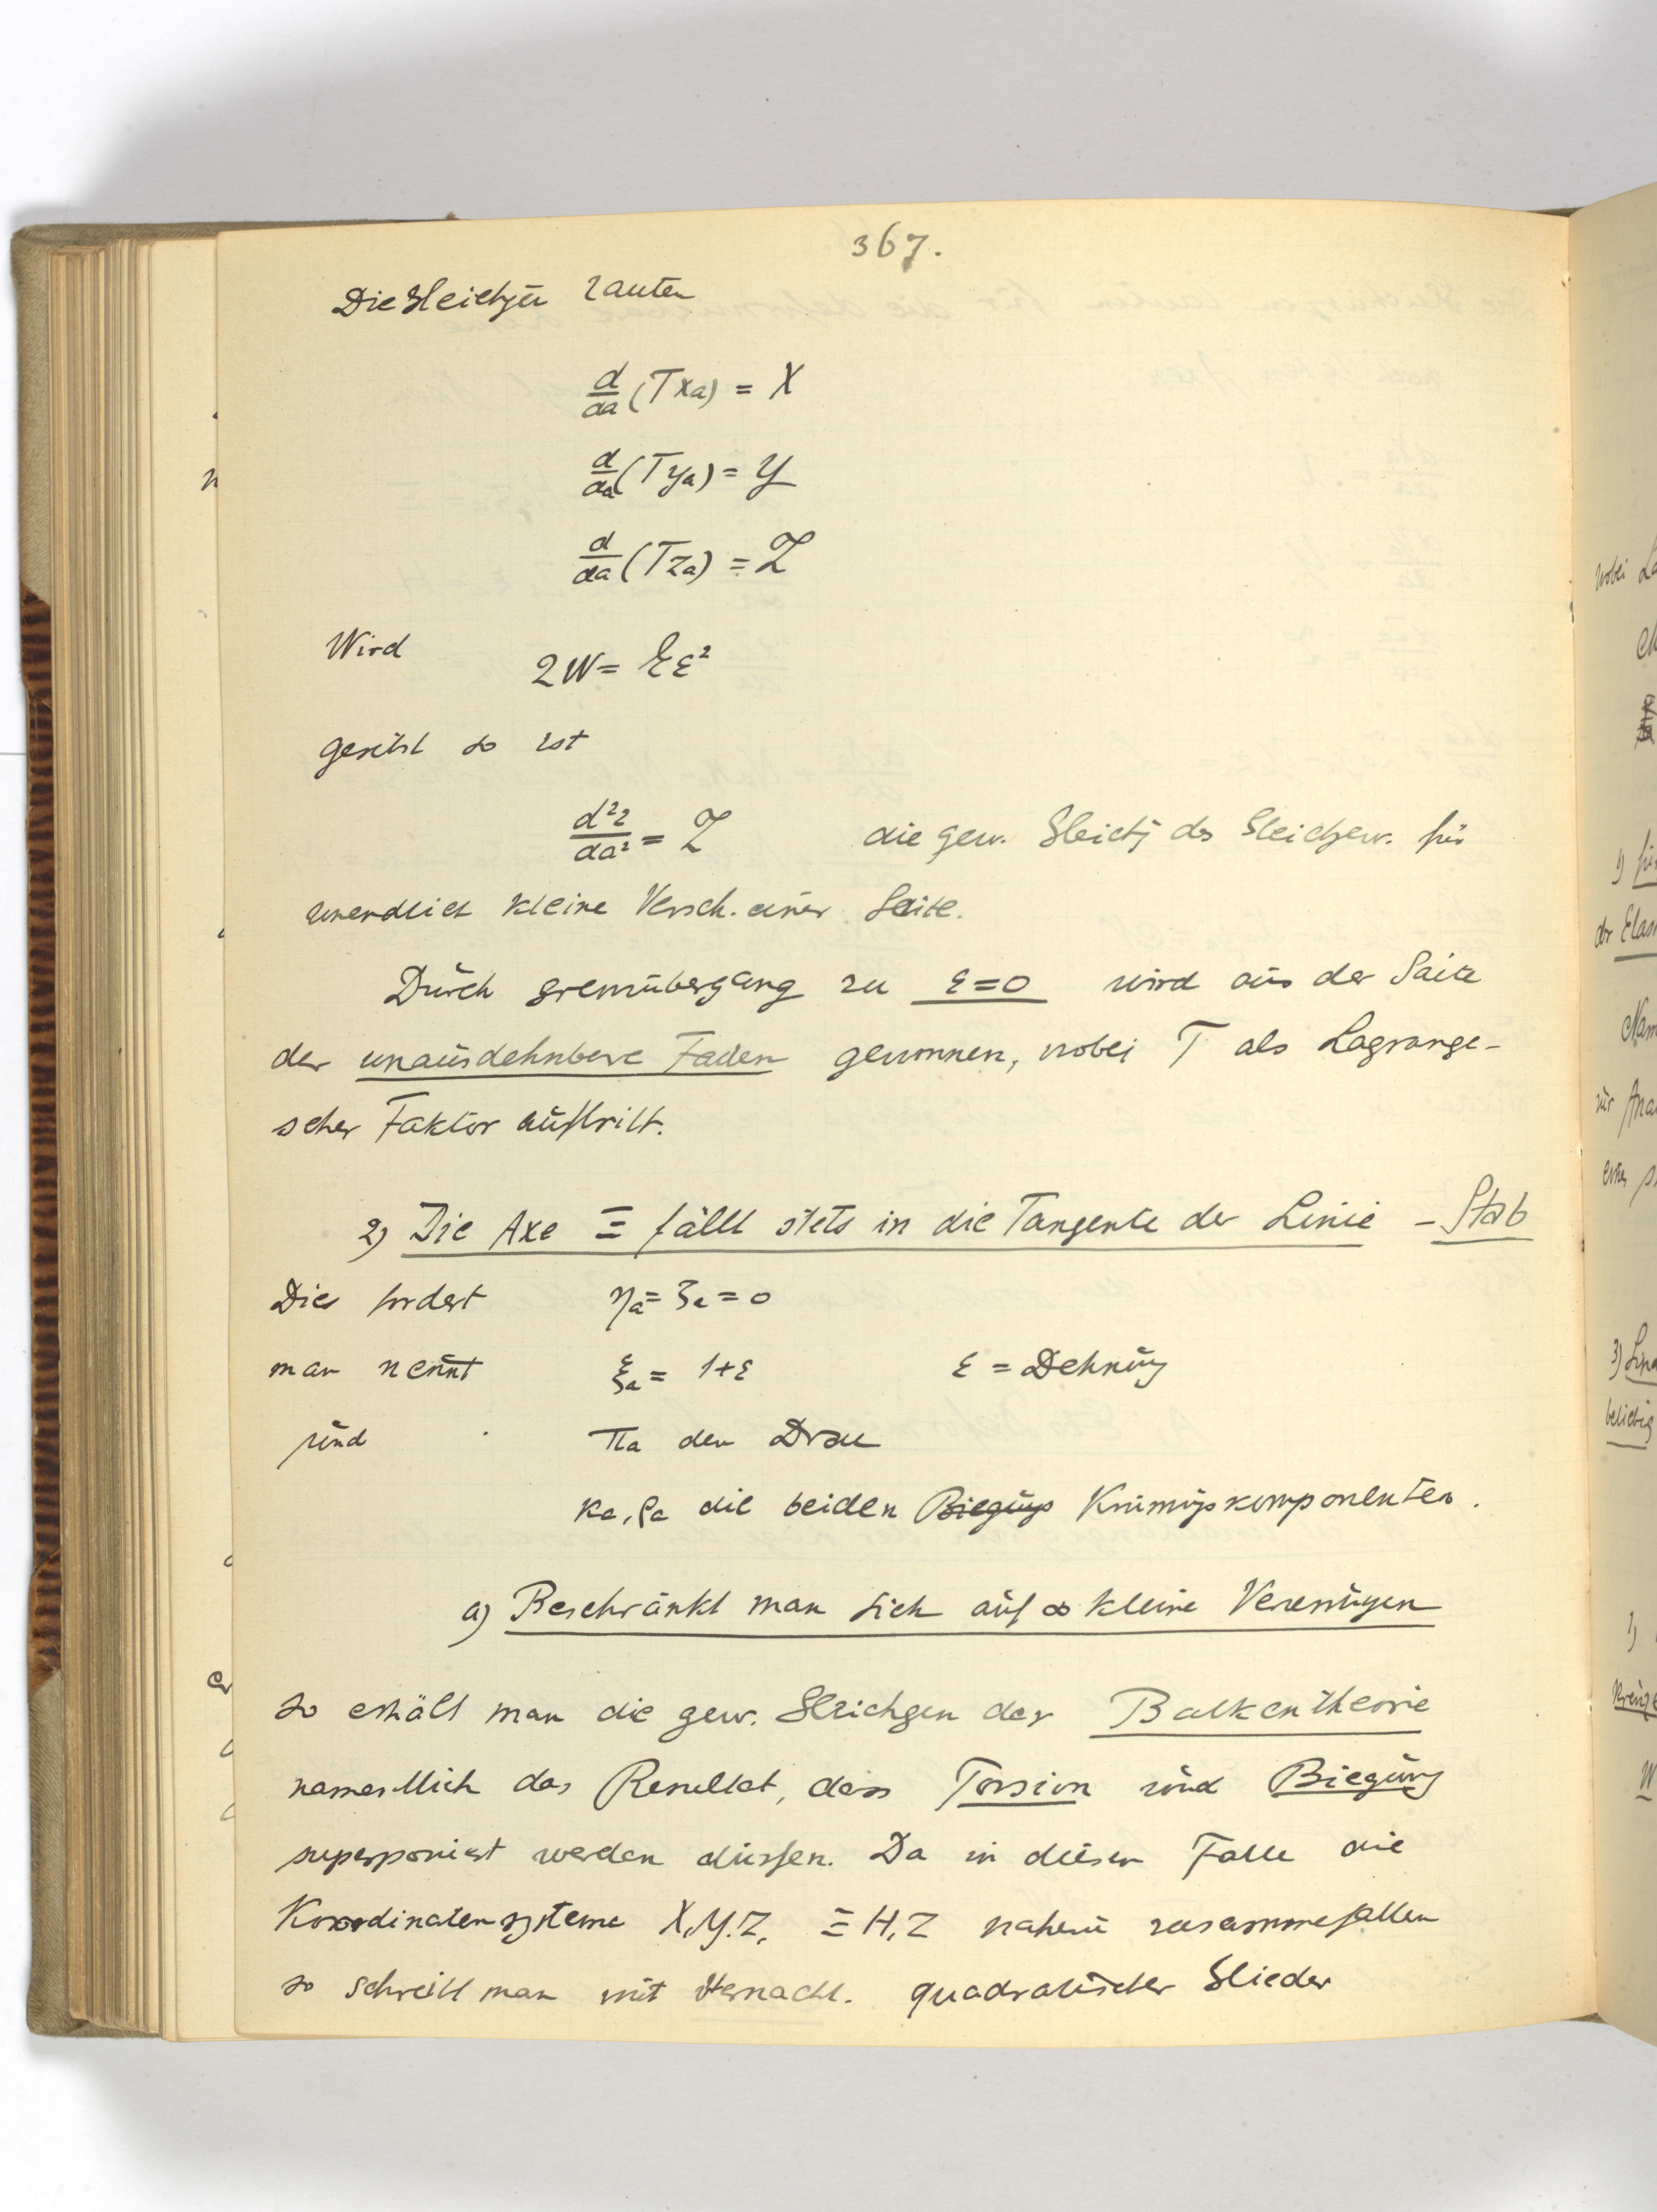 367.
Die Gleichgen lauten
d/da (T xa) = X
d/da (T ya) = Y
d/da (T za) = Z
Wird
2W = Eε²
gesetzt so ist
d²z/da² = Z die gew. Gleichg des Gleichgew. für
unendlich kleine Versch. einer Saite.
Durch Grenzübergang zu ε=0 wird aus der Saite
der unausdehnbare Faden gewonnen, wobei T als Lagrange-
scher Faktor auftritt.
2) Die Axe Ξ fällt stets in die Tangente der Linie – Stab
Dies fordert ηa = ζa = 0
man nennt ξa = 1+ε ε = Dehnung
und πa den Drall
κa, ρa die beiden Biegungs Krümungskomponenten.
a) Beschränkt man sich auf ∞ kleine Verrenkungen
so erhält man die gew. Gleichgen der Balkentheorie
namentlich das Resultat, dass Torsion und Biegung
superponiert werden dürfen. Da in diesem Falle die
Koordinatensysteme X,Y,Z, Ξ H,Z nahezu zusammefallen
so schreibt man mit Vernachl. quadratischer Glieder
wobei